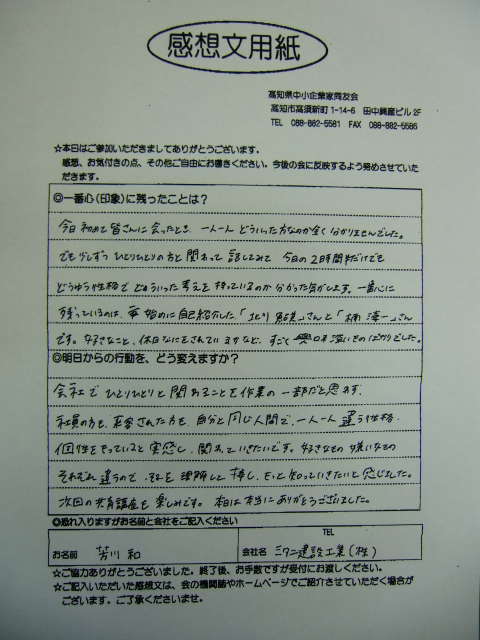 感想文用紙
高知県中小企業家同友会
高知市高須新町1-14-6 田中興産ビル2F
TEL 088-882-5581 FAX 088-882-5586
☆本日はご参加いただきましてありがとうございます。
感想、お気付きの点、その他ご自由にお書きください。今後の会に反映するよう努めさせていた
だきます。
◎一番心(印象)に残ったことは?
今日初めて皆さんに会ったとき、一人一人どういった方なのか全く分かりませんでした。
でも少しずつひとりひとりの方と関わって話してみて今日の2時間半だけでも
どうゆう性格でどういった考えを持っているのか分かった気がします。一番心に
残っているのは、始めに自己紹介した、「北川さんと「楠さんで
す。好きなこと、休日なにをされているかなど、すごく興味深いものばかりでした。
◎明日からの行動を、どう変えますか?
会社でひとりひとりと関わることを作業の一部だと思わず、
社員の方も、自分と同じ人間で、一人一人違う性格、
個性をもっていると実感し、関わっていきたいです。好きなもの嫌いなもの
それぞれ違うので、それを理解して接し、もっと知っていきたいと感じました。
次回の共育講座も楽しみです。本日は本当にありがとうございました。
◎恐れ入りますがお名前と会社をご記入ください
TEL
お名前 芳川 和
会社名 ミタニ建設工業(株)
☆ご協力ありがとうございました。終了後、お手数ですが受付にお渡しください。
☆ご記入いただいた感想文は、会の機関誌やホームページでご紹介させていただく場合が
ございます。ご了承くださいませ。